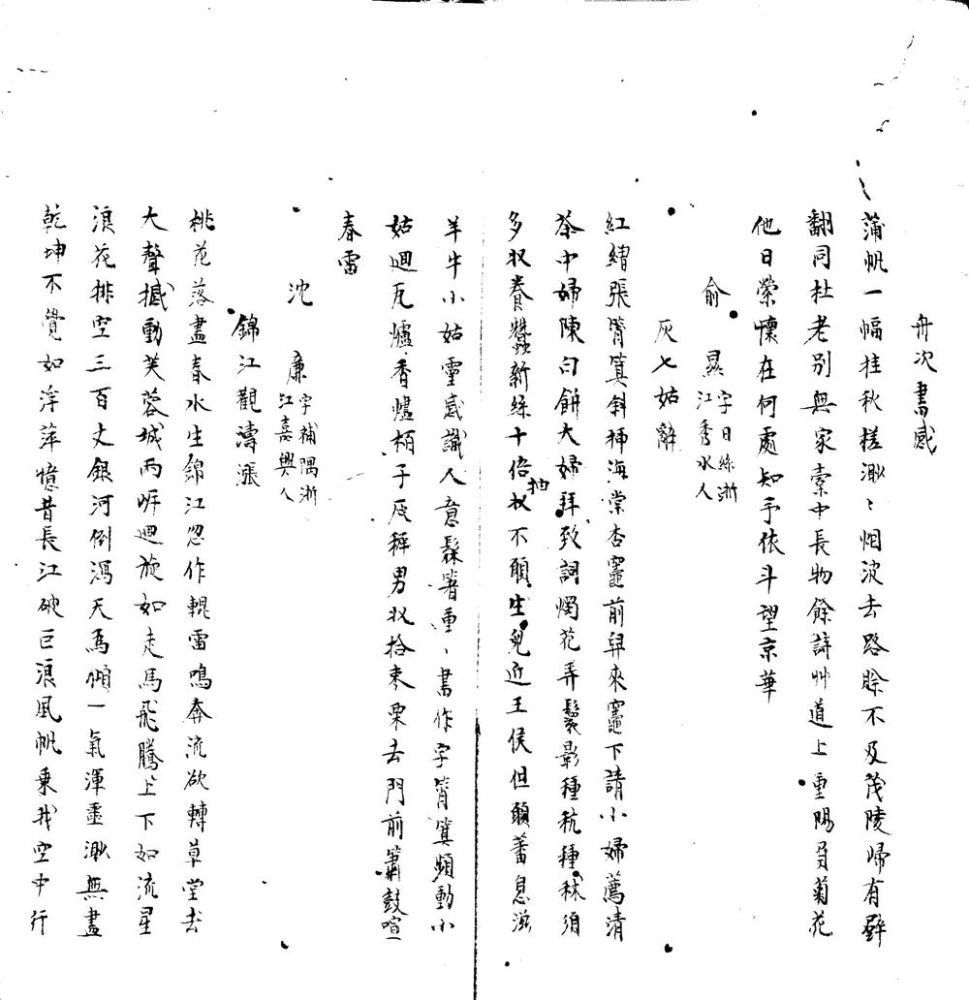 舟次書感
蒲帆一幅挂秋槎渺〻烟波去路賒不及茂陵歸有壁
翻同杜老別無家橐中長物餘詩艸道上重陽負菊花
他日縈懷在何處知予依斗望京華
俞 㬎字日絲浙江秀水人
灰七姑辭
紅緒張筲箕斜插海棠杏竈前舁來竈下請小婦薦清
茶中婦陳白餅大婦拜致詞燭花弄鬟影種秔種秫須
多收養蠶新絲十倍抽收不願生兒近王侯但願蕃息滋
羊牛小姑靈感識人意髹箸重、書作字筲箕頻動小
姑迴瓦爐香燼栢子灰稱男收拾棗栗去門前簫鼓喧
春雷
沈 廉字補隅浙江嘉興人
錦江觀濤漲
桃花落盡春水生錦江忽作輥雷鳴奔流欲轉草堂去
大聲撼動芙蓉城兩岸迴旋如走馬飛騰上下如流星
浪花排空三百丈銀河倒瀉天為傾一氣渾噩渺無盡
乾坤不覺如浮萍憶昔長江破巨浪風帆乗我空中行